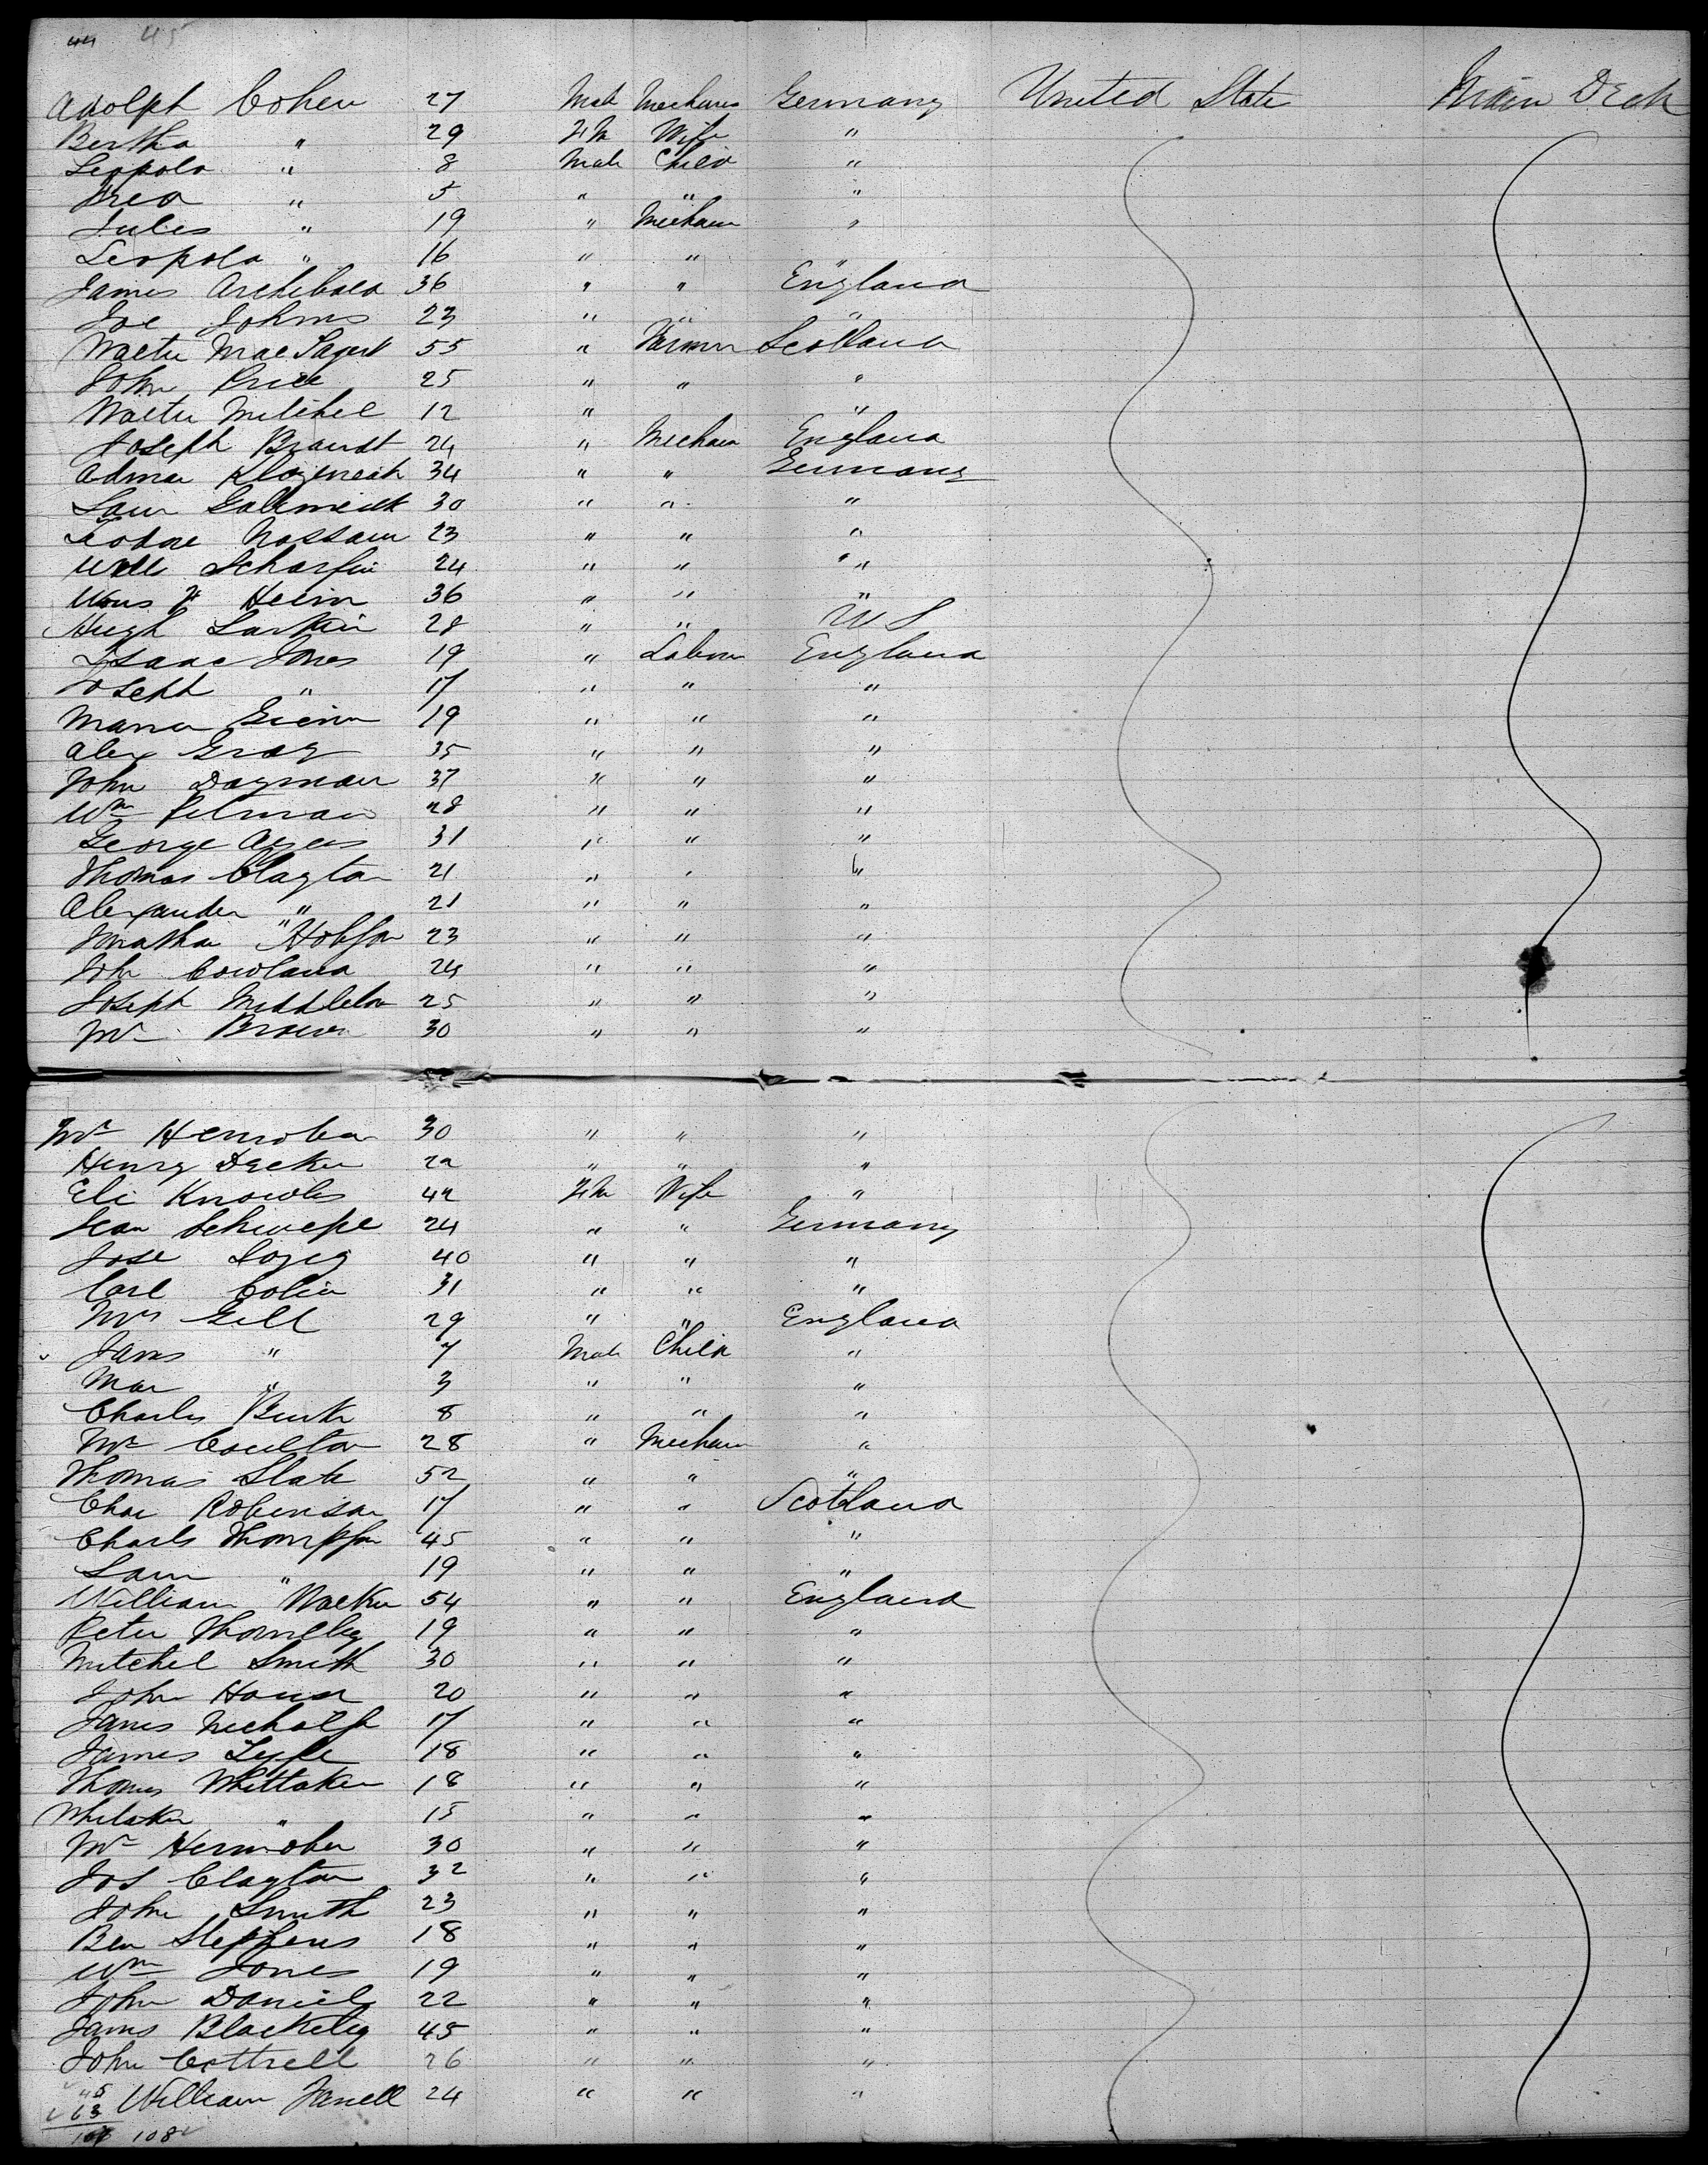 44 45
Adolph Cohen 27 Male Mechanic Germany United State Main Deck
Bertha " 29 Fm Wife "
Leopold " 8 Male Child "
Fred " 5 " " "
Julies " 19 " Mechan "
Leopold " 16 " " "
James Archibald 36 " " England
Joe Johns 23 " " "
Walter Mac 55 " Farmer Scotland
John Price 25 " " "
Walter Mitchel 12 " "
Joseph Brandt 24 " Mechan England
34 " " Germany
30 " " "
Nassau 23 " " "
Scharfin 24 " " "
Heim 36 " " "
Hugh Larkin 28 " " U S
Isaac Jones 19 " Labour England
Joseph " 17 " " "
19 " " "
Alex Gray 35 " " "
John Dayman 37 " " "
Wm Pilman 28 " " "
George 31 " " "
Thomas Clayton 21 " " "
Alexander " 21 " " "
Jonathan Hobson 23 " " "
John Cowland 24 " " "
Joseph Middleton 25 " " "
Mr Brown 30 " " "
Mr 30 " " "
Henry Decker 22 " " "
Eli Knowles 42 Fm Wife "
Schwepe 24 " " Germany
Jose 40 " " "
Carl Colin 31 " " "
Mrs Gill 29 " " England
James " 7 Male Child "
Mar " 3 " " "
Charles Burk 8 " " "
Mr Coulton 28 " Mechan "
Thomas Slate 52 " " "
Chas Robinson 17 " " Scotland
Charls Thompson 45 " " "
Sam " 19 " " "
William Walker 54 " " England
Peter Thornlley 19 " " "
Mitchel Smith 30 " " "
John 20 " " "
James 17 " " "
James Lyle 18 " " "
Thomas Whittaker 18 " " "
Whitaker " 15 " " "
Mr 30 " " "
Jos Clayton 32 " " "
John Smith 23 " " "
Ben Stephens 18 " " "
Wm Jones 19 " " "
John Daniel 22 " " "
James Blackeley 45 " " "
John Cottrell 26 " " "
45 William 24 " " "
63
108